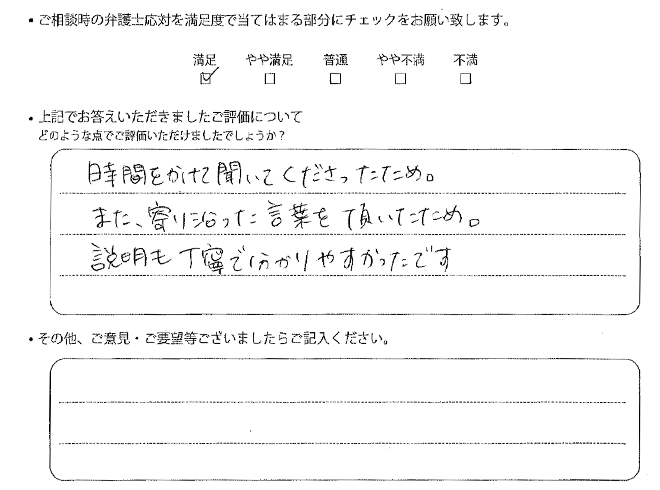 ・ご相談時の弁護士応対を満足度で当てはまる部分にチェックをお願い致します。
満足 やや満足 普通 やや不満 不満
☑ □ □ □ □
・上記でお答えいただきましたご評価について
どのような点でご評価いただけましたでしょうか？
時間をかけて聞いてくださったため。
また、寄り沿った言葉を頂いたため。
説明も丁寧で分かりやすかったです
・その他、ご意見・ご要望等ございましたらご記入ください。